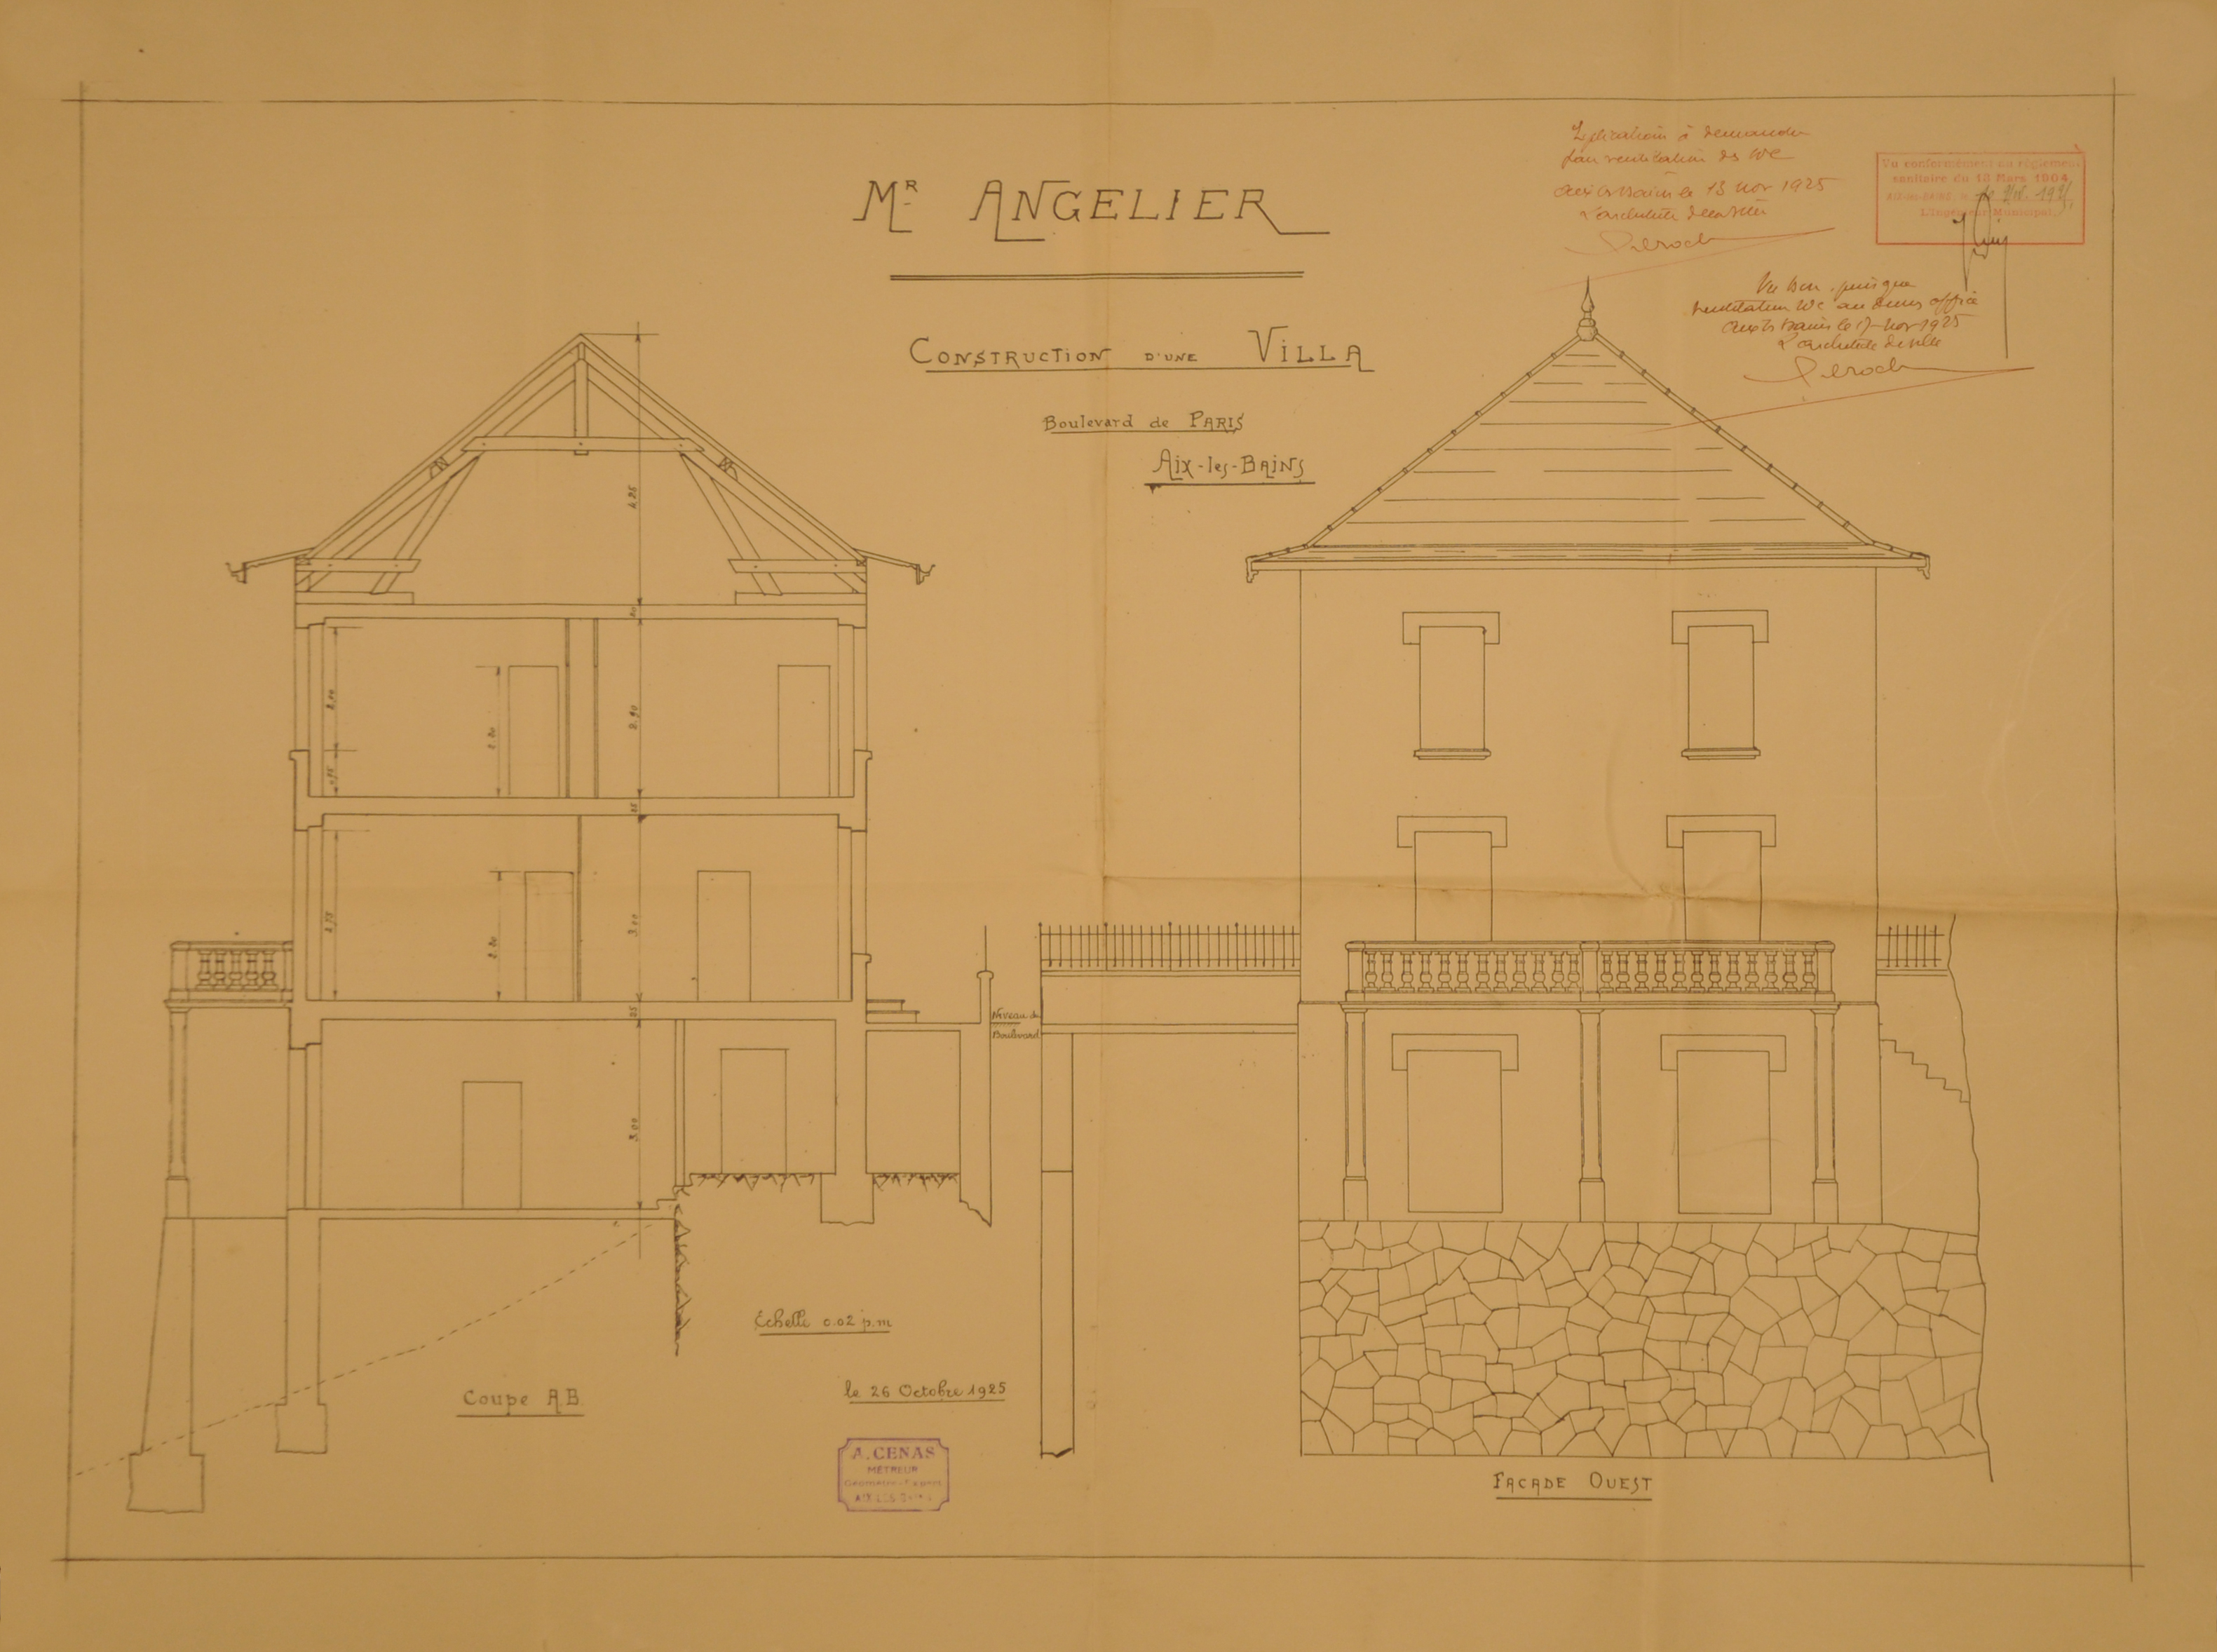 Mr ANGELIER
CONSTRUCTION D'UNE VILLA
Boulevard de PARIS
Aix-les-BAINS
Explications à demander
pour ventilation des WC
Aix les Bains le 13 Nov 1925
L'architecte de la Ville
Vu conformément au règlement
sanitaire du 18 Mars 1904
AIX-LES-BAINS, le
L'Ingénieur Municipal,
Vu bon, puisque
ventilation WC au dessus office
Aix les Bains le 17 Nov 1925
L'architecte de ville
4.25
2.00
2.20
2.90
25
2.75
2.20
3.00
25
3.00
Niveau du
Boulevard
Échelle 0.02 p.m
le 26 Octobre 1925
Coupe A B
A. CENAS
MÉTREUR
Géomètre-Expert
AIX-LES-BAINS
FACADE OUEST